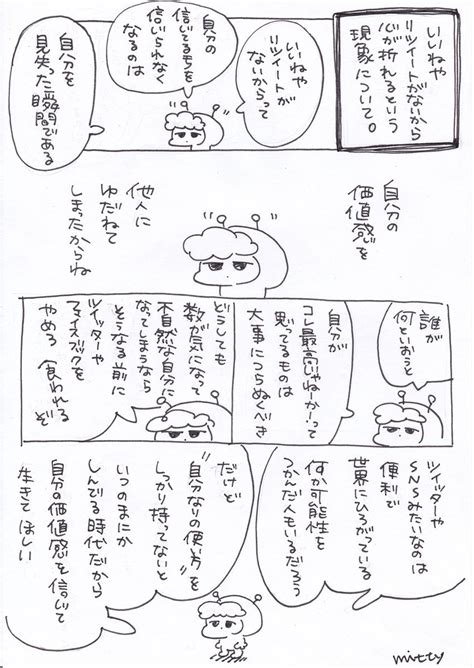 いいねや
リツイートがないから
心が折れるという
現象について。
いいねや
リツイートが
ないからって
自分の
信じてるもちを
信いられなく
なるのは
自分を
見失った瞬間である
自分の
価値感を
他人に
ゆだねて
しまったからね
誰が
何といおうと
自分が
コレ最高じゃねーか!って
思ってるものは
大事につらぬくべき
どうしても
数が気になって
不自然な自分に
なってしまうなら
そうなる前に
ツイッターや
フェイスブックを
やめろ 食われるぞ
ツイッターや
SNSみたいなのは
便利で
世界にひろがっている
何か可能性を
つかんだ人もいるだろう
だけど
"自分なりの使い方"を
しっかり持ってないと
いつのまにか
しんでる時代だから
自分の価値感を信じて
生きてほしい
mitty